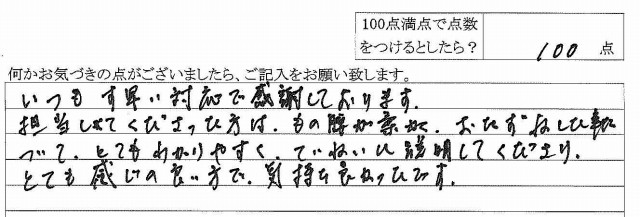 100点満点で点数
をつけるとしたら？ 100 点
何かお気づきの点がございましたら、ご記入をお願い致します。
いつも す早い対応で感謝しております。
担当して下さった方は、もの腰が柔かく、おたずねした事に
ついて、とてもわかりやすく、ていねいに説明してくださり、
とても感じの良い方で、気持ち良かったです。